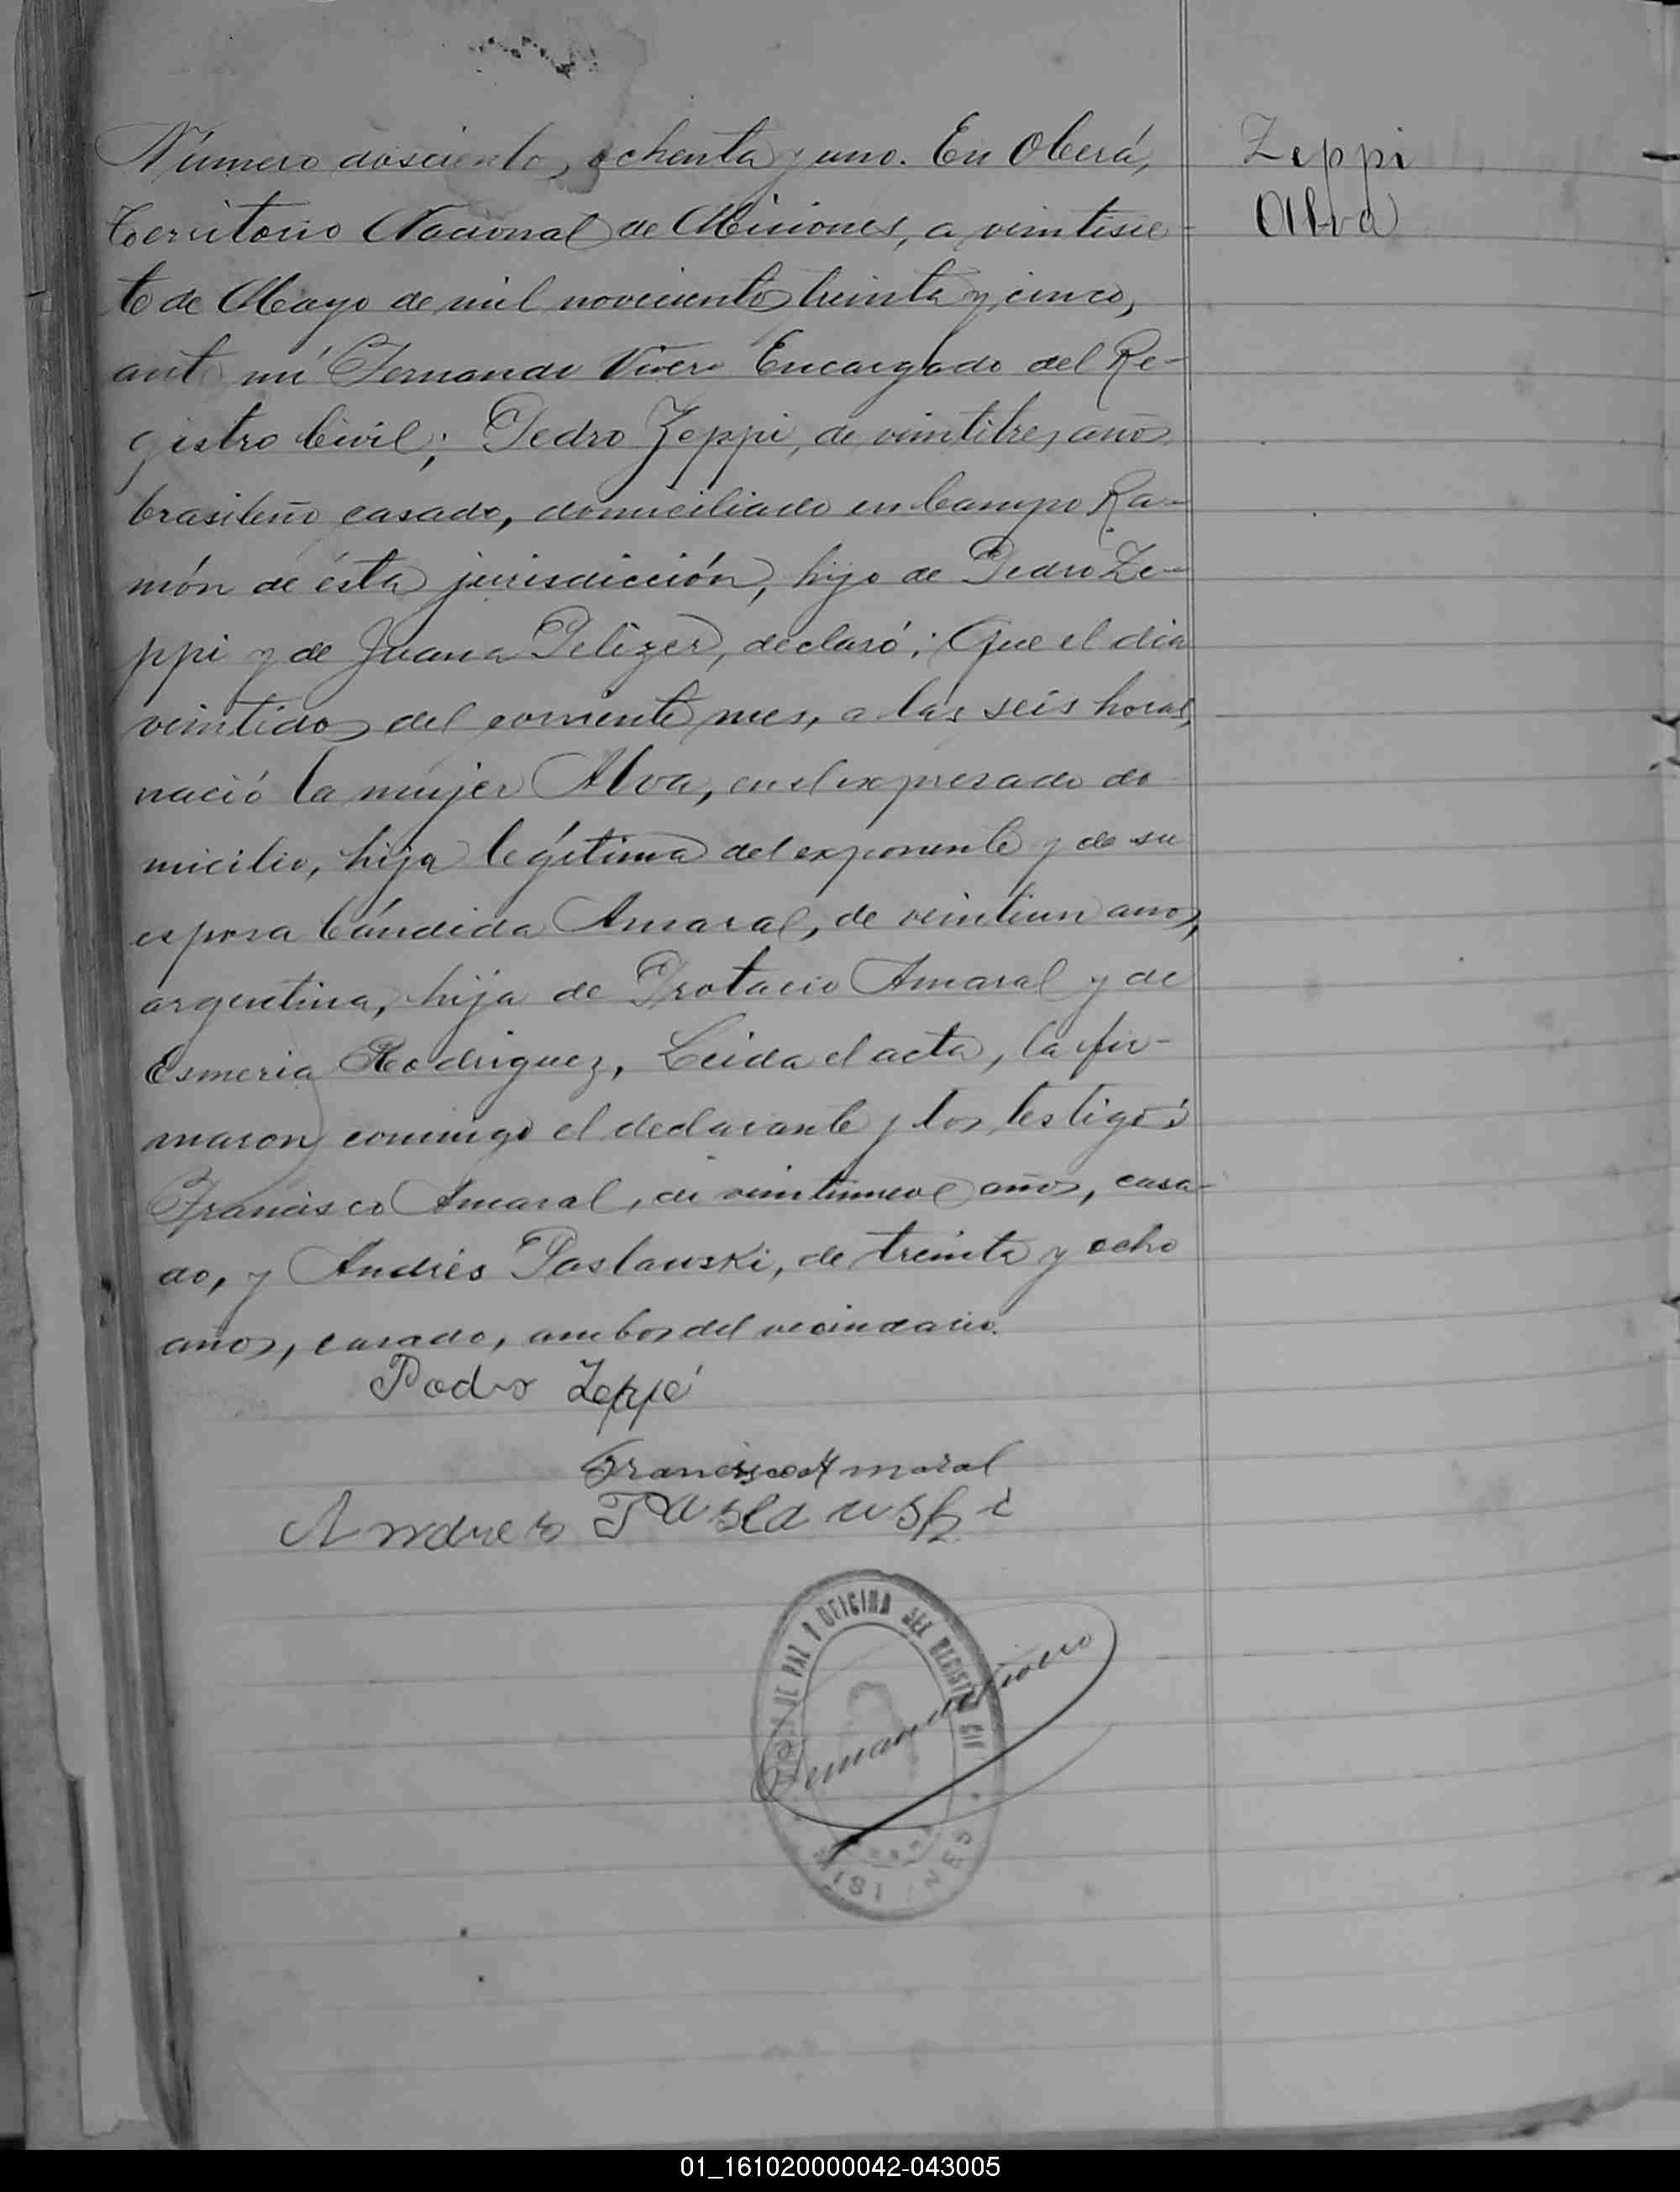 Número doscientos ochenta y uno. En Oberá,
Territorio Nacional de Misiones, a veintisie-
te de Mayo de mil novecientos treinta y cinco,
ante mí Fernando Vivero Encargado del Re-
gistro Civil; Pedro Zeppi, de veintitres años
brasileño casado, domiciliado en Campo Ra-
món de ésta jurisdicción, hijo de Pedro Ze-
ppi y de Juana Pelizer, declaró: Que el dia
veintidos del corriente mes, a las seis horas,
nació la mujer Alva, en el expresado do
micilio, hija legítima del exponente y de su
esposa Cándida Amaral, de veintiun anos,
argentina, hija de Protacio Amaral y de
Esmeria Rodriguez, Leida el acta, la fir-
maron conmigo el declarante y los testigos
Francisco Amaral, de veintinueve años, casa-
do, y Andrés Paslauski, de treinta y ocho
años, casado, ambos del vecindario.
Pedro Zeppi
Francisco Amaral
Andres Paslauski
DE PAZ Y OFICINA DEL REGISTRO CIV
Fernando Vivero
Zeppi
Alva
01_161020000042-043005